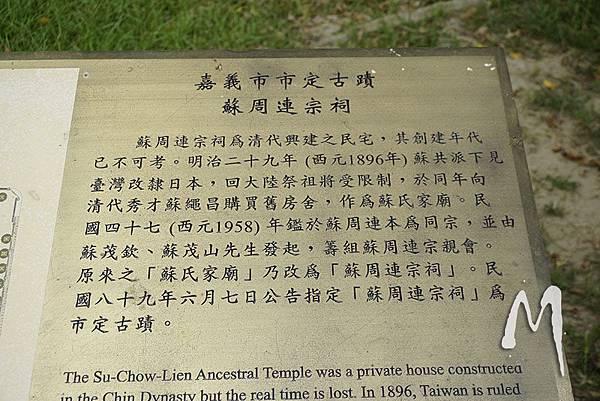 嘉義市市定古蹟
蘇周連宗祠
蘇周連宗祠為清代興建之民宅，其創建年代
已不可考。明治二十九年 (西元1896年) 蘇共派下見
臺灣改隸日本，回大陸祭祖將受限制，於同年向
清代秀才蘇繩昌購買舊房舍，作為蘇氏家廟。民
國四十七 (西元1958) 年鑑於蘇周連本為同宗，並由
蘇茂欽、蘇茂山先生發起，籌組蘇周連宗親會。
原來之「蘇氏家廟」乃改為「蘇周連宗祠」。民
國八十九年六月七日公告指定「蘇周連宗祠」為
市定古蹟。
The Su-Chow-Lien Ancestral Temple was a private house constructed
in the Chin Dynasty but the real time is lost. In 1896, Taiwan is ruled
M